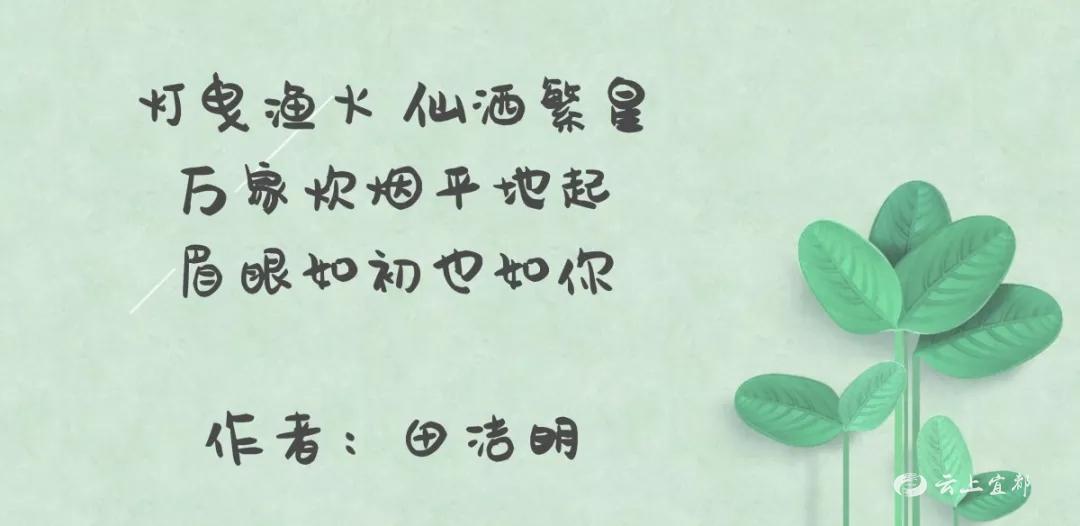 灯曳渔火 仙洒繁星
万家炊烟平地起
眉眼如初也如你
作者：田洁明
云上宜都